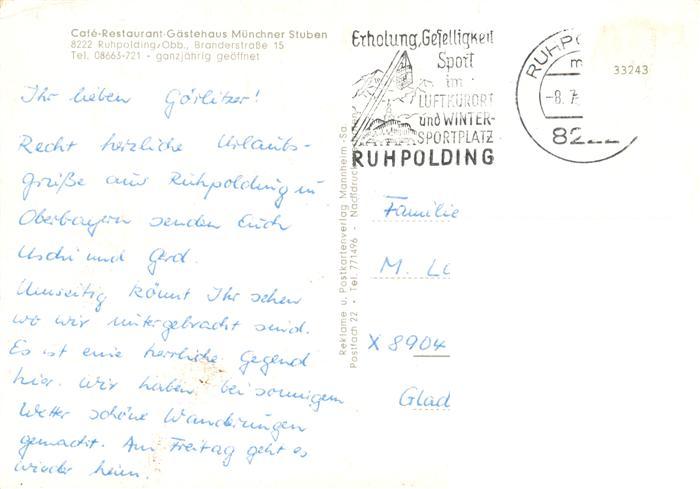 Café-Restaurant-Gästehaus Münchner Stuben
8222 Ruhpolding/Obb., Branderstraße 15
Tel. 08663-721 - ganzjährig geöffnet
Ihr lieben Görlitzer!
Recht herzliche Urlaubs-
grüße aus Ruhpolding in
Oberbayern senden Euch
Uschi und Gerd.
Umseitig könnt Ihr sehen
wo wir untergebracht sind.
Es ist eine herrliche Gegend
hier. Wir haben bei sonnigem
Wetter schöne Wanderungen
gemacht. Am Freitag geht es
wieder heim.
Reklame u. Postkartenverlag Mannheim-Sa.
Postfach 22 · Tel. 771496 - Nachdruck
Erholung, Geselligkeit
Sport
im
LUFTKURORT
und WINTER-
SPORTPLATZ
RUHPOLDING
RUHPO
m
-8.7.
822
33243
Familie
M. L
X 8904
Glad